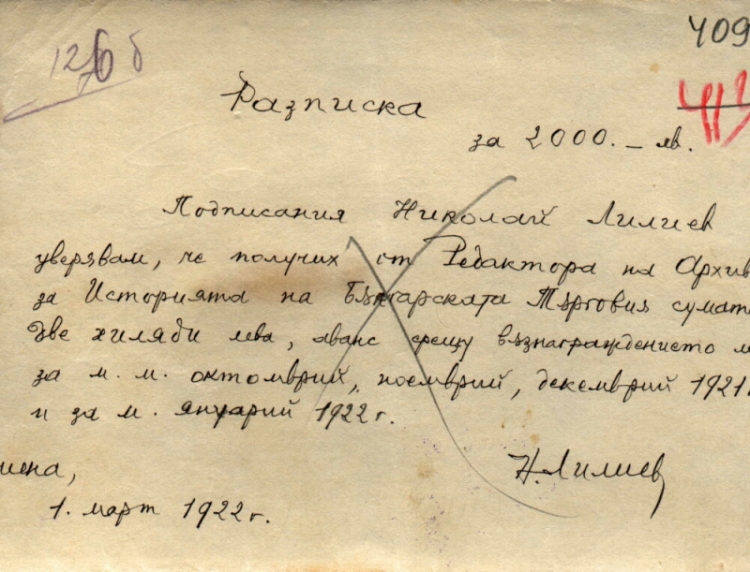 126 б
409
413
Разписка
за 2000. – лв.
Подписания Николай Лилиев
уверявам, че получих от Редактора на Архив
за Историята на Българската Търговия сумата
две хиляди лева, аванс срещу възнаграждението м
за м. м. октомврий, ноемврий, декемврий 1921г.
и за м. януарий 1922 г.
иена,
Н. Лилиев
1. март 1922 г.